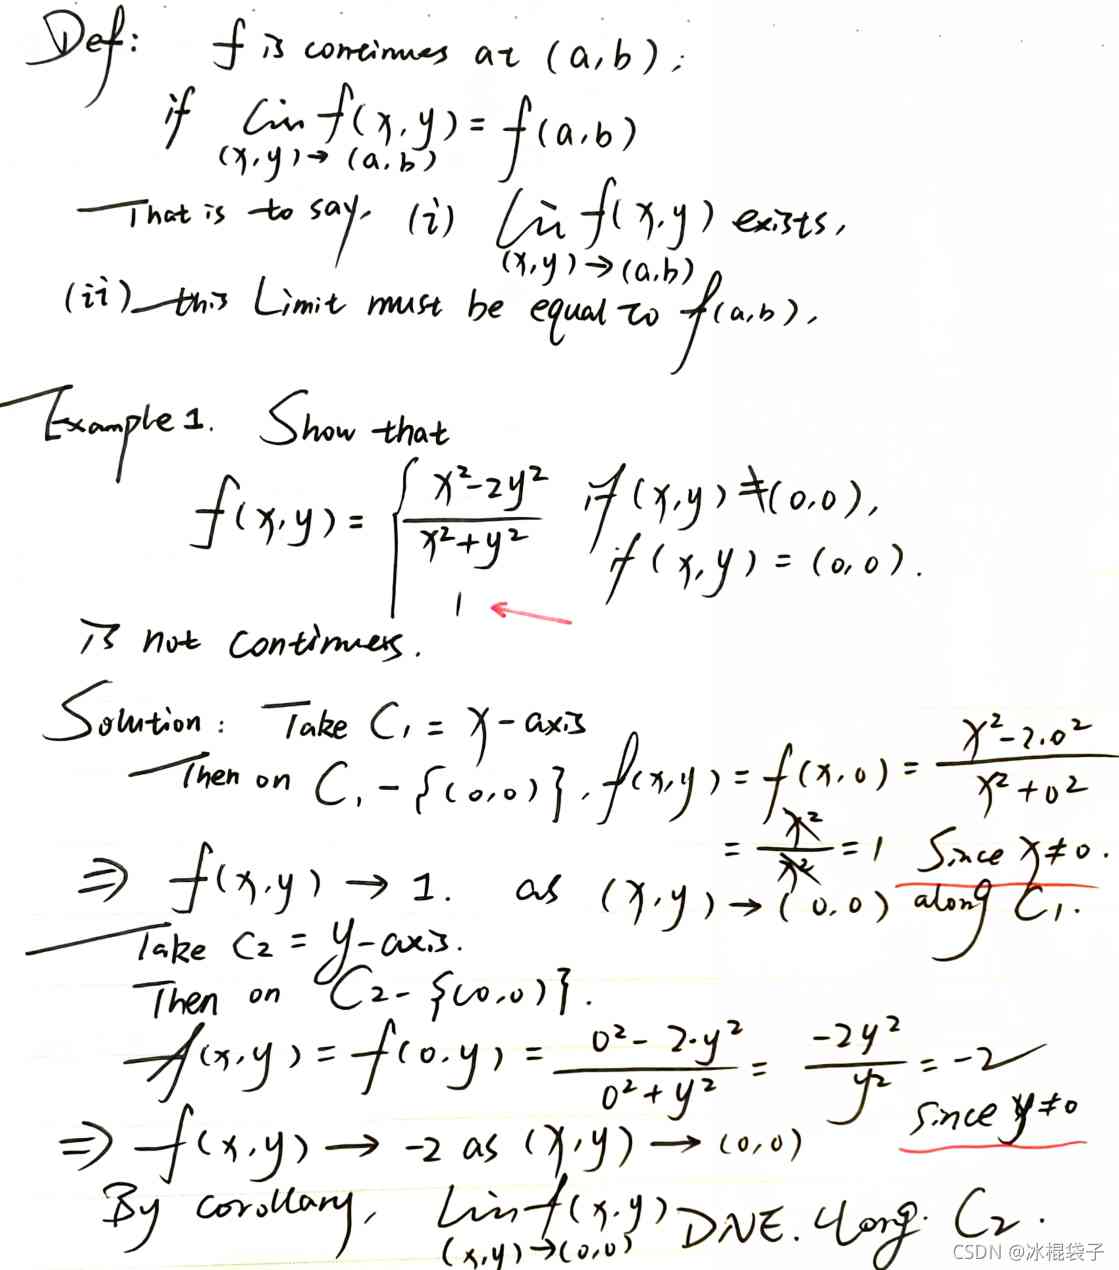 Def: f is continues at (a,b);
if lim f(x,y) = f(a,b)
(x,y)→(a,b)
That is to say, (i) lim f(x,y) exists,
(x,y)→(a,b)
(ii) this Limit must be equal to f(a,b),
Example 1. Show that
f(x,y) = { x²-2y² / x²+y² if (x,y)≠(0,0),
1 if (x,y) = (0,0).
is not continues.
Solution: Take C₁ = x-axis
Then on C₁-{(0,0)}, f(x,y) = f(x,0) = x²-2·0² / x²+0²
= x²/x² = 1 Since x≠0.
⇒ f(x,y) → 1. as (x,y)→(0,0) along C₁.
Take C₂ = y-axis.
Then on C₂-{(0,0)}.
f(x,y) = f(0,y) = 0²-2·y² / 0²+y² = -2y² / y² = -2
since y≠0
⇒ f(x,y) → -2 as (x,y) → (0,0)
By corollary, lim f(x,y) DNE. along C₂.
(x,y)→(0,0)
CSDN @冰棍袋子